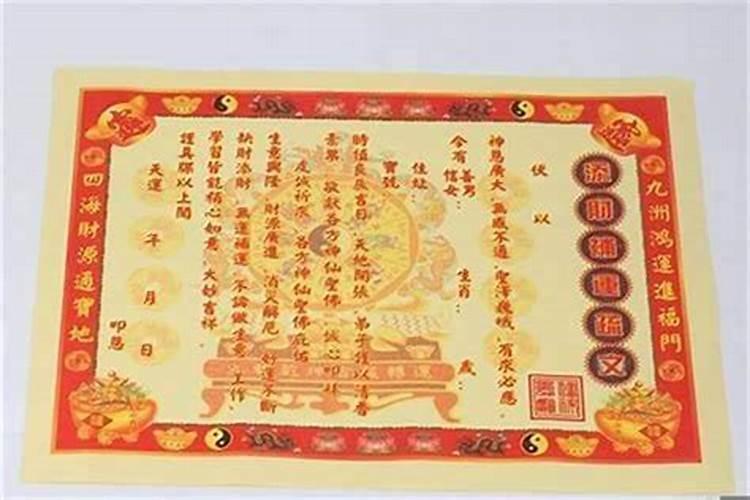 九洲鴻運進福門
添財補運疏文
伏以
神恩廣大 無感不通 聖澤巍峨 有求必應
今有 善男 信女 生肖 歲
住址
寶號
時值良辰吉日 天地開張 弟子謹以清香
素果 敬獻各方神仙聖佛 誠心叩拜
虔誠祈求 各方神仙聖佛庇佑
生意興隆 財源廣進 消災解厄 好運不斷
缺財添財 無運補運 不論做生意 工作、
學習皆能稱心如意 大妙吉祥
謹具疏以上聞
天運 年 月 日 叩懇
四海財源通寶地